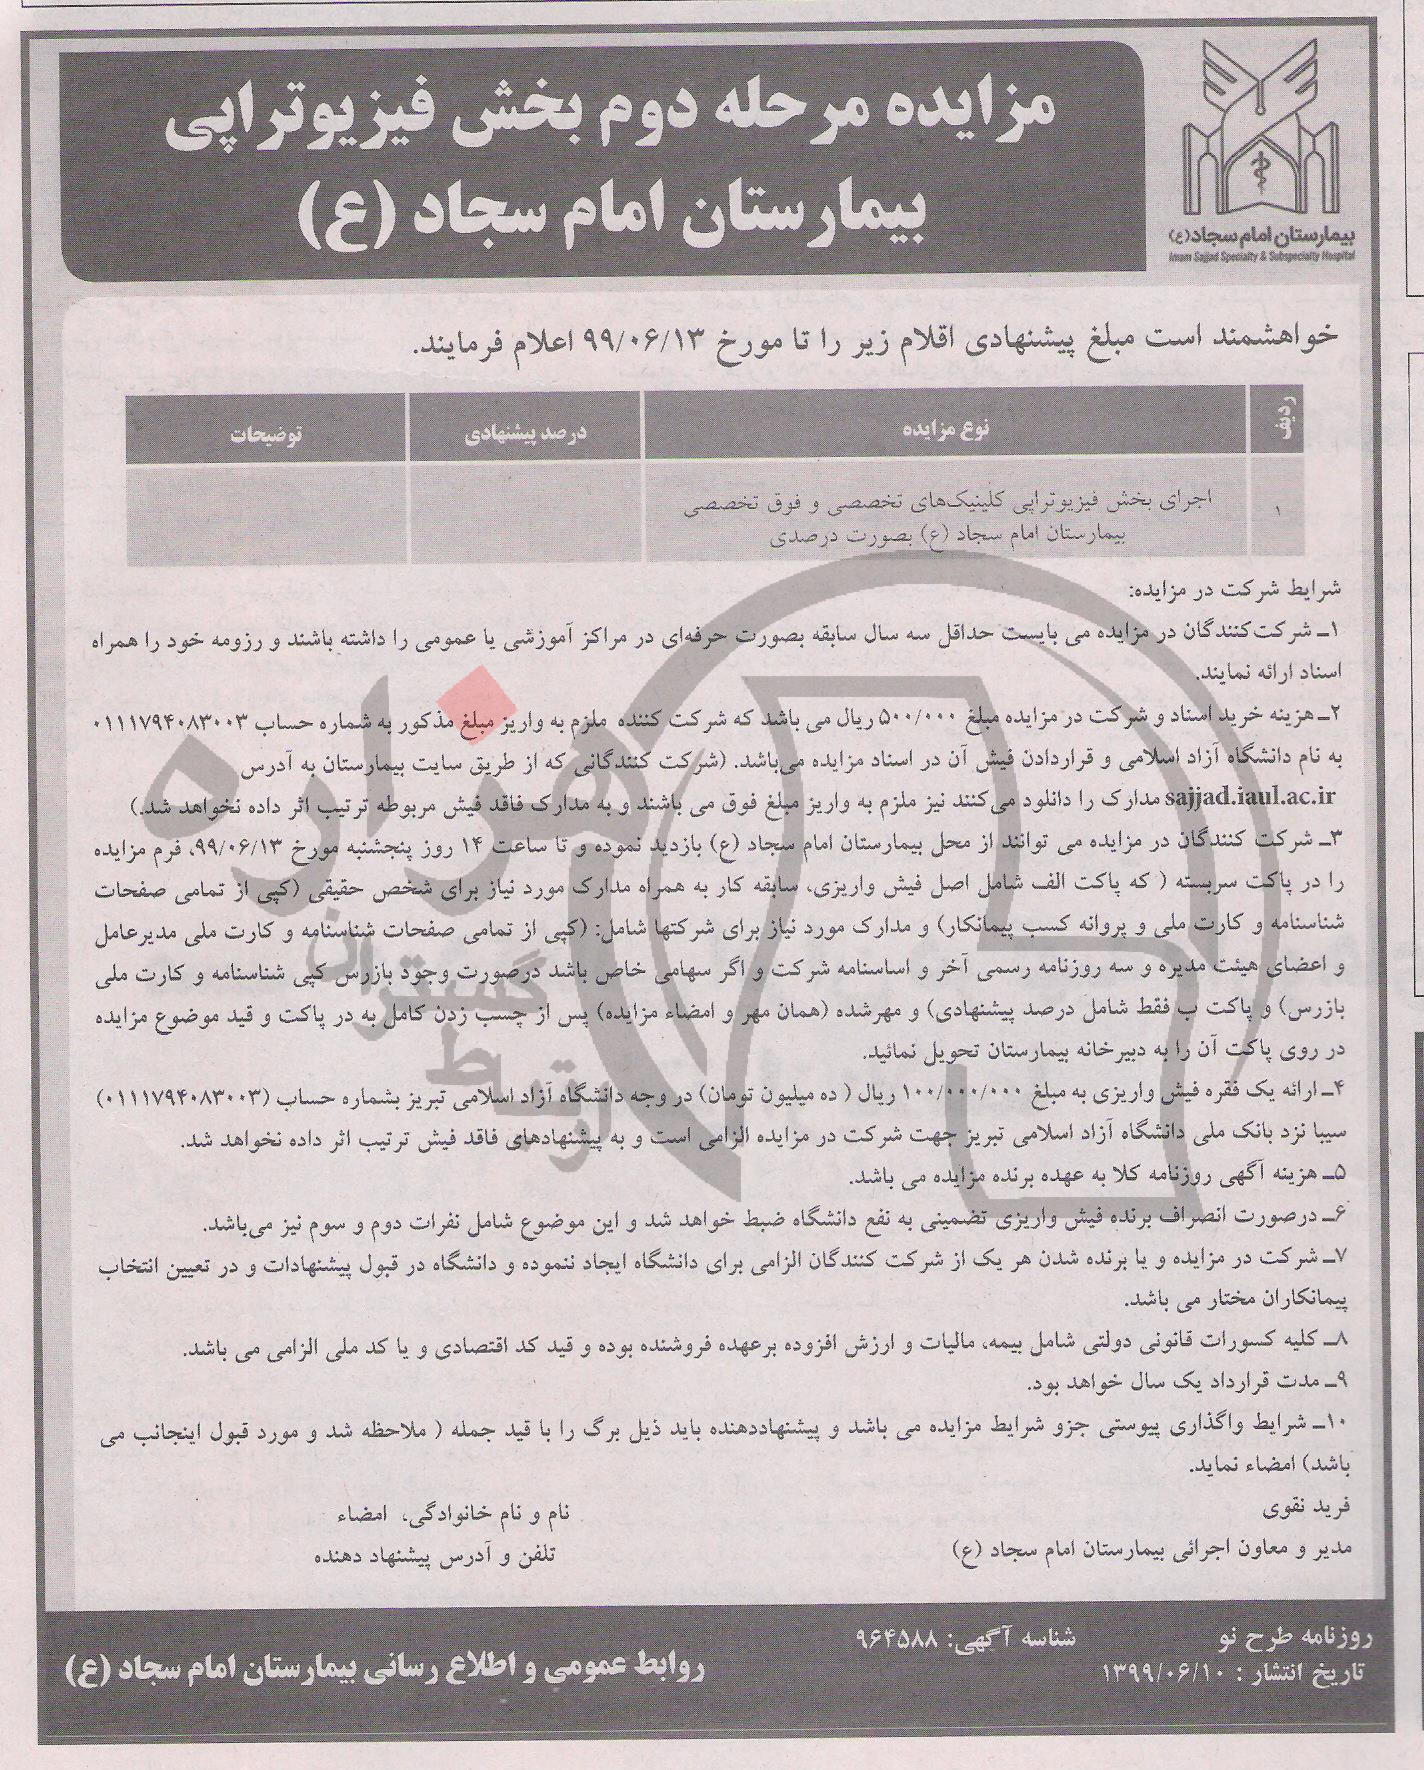 مزایده مرحله دوم بخش فیزیوتراپی
بیمارستان امام سجاد (ع)
بیمارستان امام سجاد (ع)
Imam Sajjad Specialty & Subspecialty Hospital
خواهشمند است مبلغ پیشنهادی اقلام زیر را تا مورخ ۹۹/۰۶/۱۳ اعلام فرمایند.
ردیف نوع مزایده درصد پیشنهادی توضیحات
۱ اجرای بخش فیزیوتراپی کلینیک‌های تخصصی و فوق تخصصی
بیمارستان امام سجاد (ع) بصورت درصدی
شرایط شرکت در مزایده:
۱ـ شرکت‌کنندگان در مزایده می بایست حداقل سه سال سابقه بصورت حرفه‌ای در مراکز آموزشی یا عمومی را داشته باشند و رزومه خود را همراه
اسناد ارائه نمایند.
۲ـ هزینه خرید اسناد و شرکت در مزایده مبلغ ۵۰۰/۰۰۰ ریال می باشد که شرکت کننده ملزم به واریز مبلغ مذکور به شماره حساب ۰۱۱۱۷۹۴۰۸۳۰۰۳
به نام دانشگاه آزاد اسلامی و قراردادن فیش آن در اسناد مزایده می‌باشد. (شرکت کنندگانی که از طریق سایت بیمارستان به آدرس
sajjad.iaul.ac.ir مدارک را دانلود می‌کنند نیز ملزم به واریز مبلغ فوق می باشند و به مدارک فاقد فیش مربوطه ترتیب اثر داده نخواهد شد.)
۳ـ شرکت کنندگان در مزایده می توانند از محل بیمارستان امام سجاد (ع) بازدید نموده و تا ساعت ۱۴ روز پنجشنبه مورخ ۹۹/۰۶/۱۳، فرم مزایده
را در پاکت سربسته ( که پاکت الف شامل اصل فیش واریزی، سابقه کار به همراه مدارک مورد نیاز برای شخص حقیقی (کپی از تمامی صفحات
شناسنامه و کارت ملی و پروانه کسب پیمانکار) و مدارک مورد نیاز برای شرکتها شامل: (کپی از تمامی صفحات شناسنامه و کارت ملی مدیرعامل
و اعضای هیئت مدیره و سه روزنامه رسمی آخر و اساسنامه شرکت و اگر سهامی خاص باشد درصورت وجود بازرس کپی شناسنامه و کارت ملی
بازرس) و پاکت ب فقط شامل درصد پیشنهادی) و مهرشده (همان مهر و امضاء مزایده) پس از چسب زدن کامل به در پاکت و قید موضوع مزایده
در روی پاکت آن را به دبیرخانه بیمارستان تحویل نمائید.
۴ـ ارائه یک فقره فیش واریزی به مبلغ ۱۰۰/۰۰۰/۰۰۰ ریال ( ده میلیون تومان) در وجه دانشگاه آزاد اسلامی تبریز بشماره حساب (۰۱۱۱۷۹۴۰۸۳۰۰۳)
سیبا نزد بانک ملی دانشگاه آزاد اسلامی تبریز جهت شرکت در مزایده الزامی است و به پیشنهادهای فاقد فیش ترتیب اثر داده نخواهد شد.
۵ـ هزینه آگهی روزنامه کلا به عهده برنده مزایده می باشد.
۶ـ درصورت انصراف برنده فیش واریزی تضمینی به نفع دانشگاه ضبط خواهد شد و این موضوع شامل نفرات دوم و سوم نیز می‌باشد.
۷ـ شرکت در مزایده و یا برنده شدن هر یک از شرکت کنندگان الزامی برای دانشگاه ایجاد ننموده و دانشگاه در قبول پیشنهادات و در تعیین انتخاب
پیمانکاران مختار می باشد.
۸ـ کلیه کسورات قانونی دولتی شامل بیمه، مالیات و ارزش افزوده برعهده فروشنده بوده و قید کد اقتصادی و یا کد ملی الزامی می باشد.
۹ـ مدت قرارداد یک سال خواهد بود.
۱۰ـ شرایط واگذاری پیوستی جزو شرایط مزایده می باشد و پیشنهاددهنده باید ذیل برگ را با قید جمله ( ملاحظه شد و مورد قبول اینجانب می
باشد) امضاء نماید.
فرید نقوی نام و نام خانوادگی، امضاء
مدیر و معاون اجرائی بیمارستان امام سجاد (ع) تلفن و آدرس پیشنهاد دهنده
روزنامه طرح نو شناسه آگهی: ۹۶۴۵۸۸
تاریخ انتشار : ۱۳۹۹/۰۶/۱۰
روابط عمومی و اطلاع رسانی بیمارستان امام سجاد (ع)